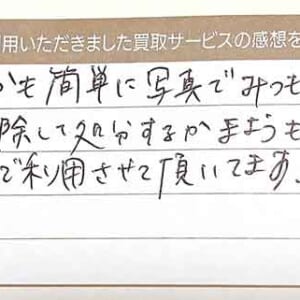 用いただきました買取サービスの感想を
かも簡単に写真でみつも
除して処分するかまようも
で利用させて頂いてます。